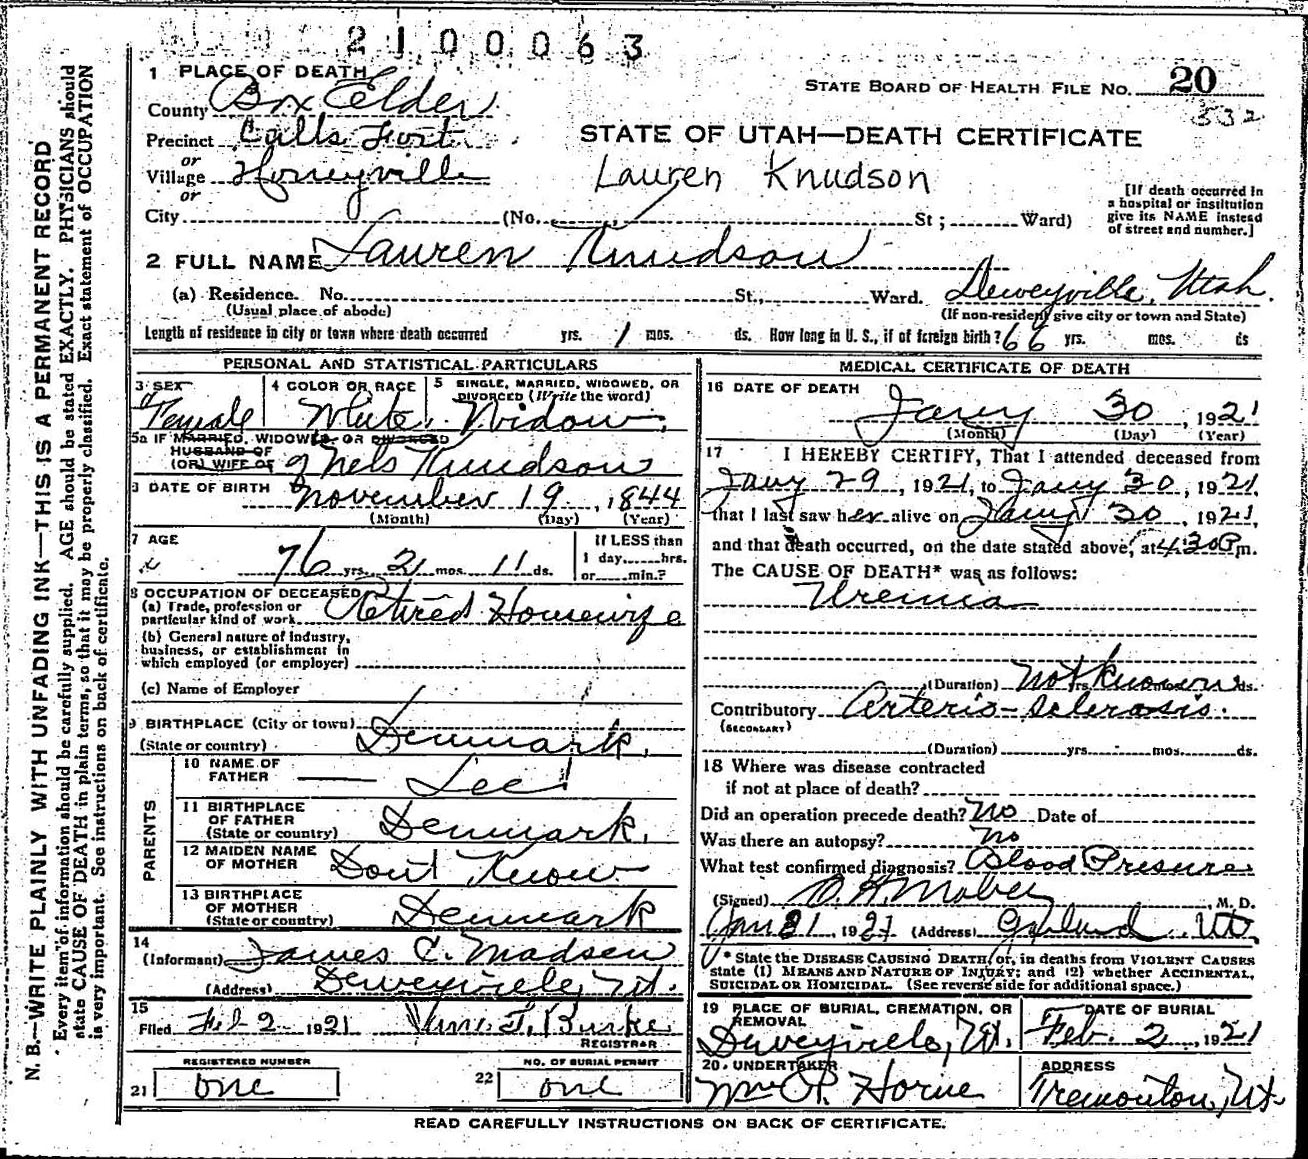 2100063
1 PLACE OF DEATH
STATE BOARD OF HEALTH FILE NO. 20
County Box Elder
332
Precinct Calls Fort
STATE OF UTAH—DEATH CERTIFICATE
or
Village Honeyville
Lauren Knudson
or
[If death occurred in
a hospital or institution
give its NAME instead
of street and number.]
City (No. St; Ward)
2 FULL NAME Lauren Knudson
(a) Residence. No. St., Ward. Deweyville, Utah.
(Usual place of abode) (If non-resident give city or town and State)
Length of residence in city or town where death occurred yrs. 1 mos. ds. How long in U. S., if of foreign birth? 66 yrs. mos. ds
PERSONAL AND STATISTICAL PARTICULARS
3 SEX 4 COLOR OR RACE 5 SINGLE, MARRIED, WIDOWED, OR
DIVORCED (Write the word)
Female White. Widow.
5a IF MARRIED, WIDOWED, OR DIVORCED
HUSBAND OF
(OR) WIFE OF of Nels Knudson
DATE OF BIRTH November 19, 1844
(Month) (Day) (Year)
7 AGE If LESS than
76 yrs. 2 mos. 11 ds. 1 day......hrs.
or......min.?
8 OCCUPATION OF DECEASED
(a) Trade, profession or
particular kind of work Retired Housewife
(b) General nature of industry,
business, or establishment in
which employed (or employer)
(c) Name of Employer
9 BIRTHPLACE (City or town)
(State or country) Denmark.
PARENTS
10 NAME OF
FATHER Lee
11 BIRTHPLACE
OF FATHER
(State or country) Denmark.
12 MAIDEN NAME
OF MOTHER Dont Know
13 BIRTHPLACE
OF MOTHER
(State or country) Denmark
14
(Informant) James C. Madsen
(Address) Deweyville, Ut.
15
Filed Feb 2 1921 Wm. F. Burke
REGISTRAR
REGISTERED NUMBER NO. OF BURIAL PERMIT
21 one 22 one
MEDICAL CERTIFICATE OF DEATH
16 DATE OF DEATH
Jany 30, 1921
(Month) (Day) (Year)
17 I HEREBY CERTIFY, That I attended deceased from
Jany 29, 1921, to Jany 30, 1921,
that I last saw her alive on Jany 30, 1921,
and that death occurred, on the date stated above, at 4.30 P m.
The CAUSE OF DEATH* was as follows:
Uremia
(Duration) not known yrs. mos. ds.
Contributory Arterio-Sclerosis.
(SECONDARY)
(Duration) yrs. mos. ds.
18 Where was disease contracted
if not at place of death?
Did an operation precede death? No Date of
Was there an autopsy? No
What test confirmed diagnosis? Blood Presure
(Signed) O. H. Mabey, M. D.
Jan 31, 1921 (Address) Garland Ut.
* State the DISEASE CAUSING DEATH, or, in deaths from VIOLENT CAUSES
state (1) MEANS AND NATURE OF INJURY; and (2) whether ACCIDENTAL,
SUICIDAL OR HOMICIDAL. (See reverse side for additional space.)
19 PLACE OF BURIAL, CREMATION, OR
REMOVAL
DATE OF BURIAL
Deweyville, Ut. Feb. 2, 1921
20. UNDERTAKER ADDRESS
Wm P. Horne Tremonton, Ut.
READ CAREFULLY INSTRUCTIONS ON BACK OF CERTIFICATE.
N. B.—WRITE PLAINLY WITH UNFADING INK—THIS IS A PERMANENT RECORD
Every item of information should be carefully supplied. AGE should be stated EXACTLY. PHYSICIANS should
state CAUSE OF DEATH in plain terms, so that it may be properly classified. Exact statement of OCCUPATION
is very important. See instructions on back of certificate.